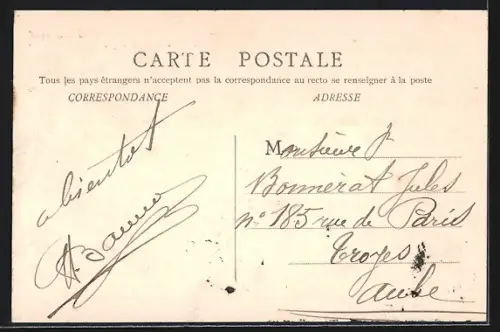 CARTE POSTALE
Tous les pays étrangers n'acceptent pas la correspondance au recto se renseigner à la poste
CORRESPONDANCE
abientot
ADRESSE
Monsieure
Bonnerat Jules
n° 185 rue de Paris
Troyes
Aube